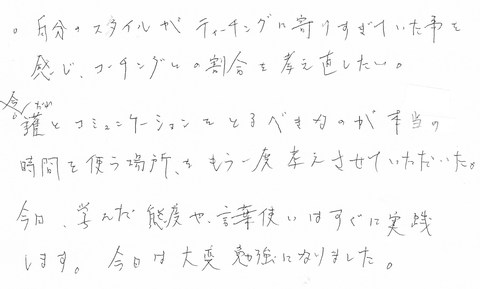 。自分のスタイルがティーチングに寄りすぎていた事を
感じ、コーチングとの割合を考え直したい。
誰とコミュニケーションをとるべきなのが本当の
時間を使う場所、をもう一度考えさせていただいた。
今日、学んだ態度や、言葉使いはすぐに実践
します。今日は大変勉強になりました。